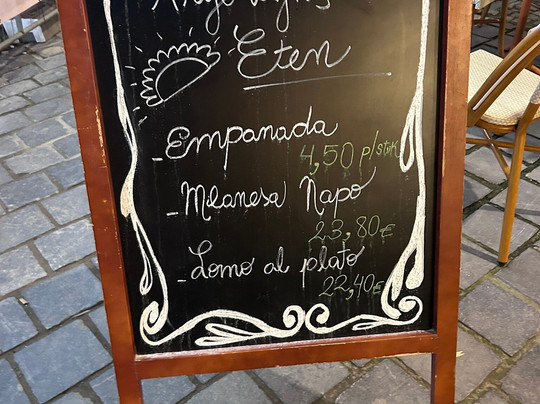 Eten
- Empanada
4,50 p/stuk
- Mlanesa Napo
23,80€
- Lomo al plato
22,40€